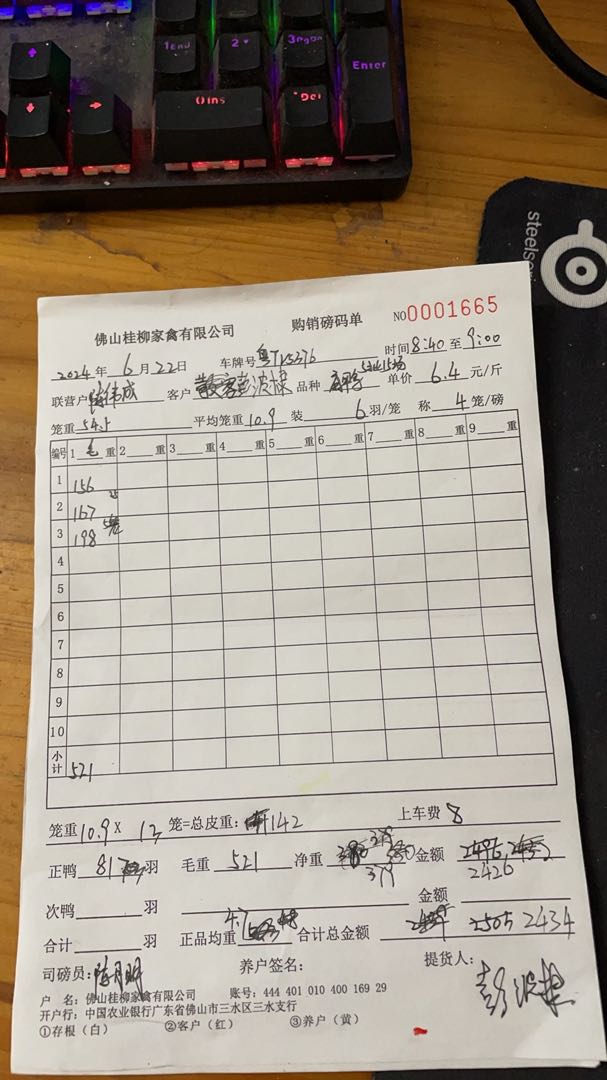 1 End
2
3 PgDn
Enter
0 Ins
Del
steelse
佛山桂柳家禽有限公司 购销磅码单 NO 0001665
2024 年 6 月 22 日 车牌号 时间 8:40 至 9:00
联营户 客户 品种 单价 6.4 元/斤
笼重 54.5 平均笼重 10.9 装 6 羽/笼 称 4 笼/磅
编号 1 毛 重 2 重 3 重 4 重 5 重 6 重 7 重 8 重 9 重
1 156
2 167
3 198
4
5
6
7
8
9
10
小计 521
笼重 10.9 X 13 笼=总皮重: 142 上车费 8
正鸭 81 羽 毛重 521 净重 379 金额 2426
次鸭 羽 金额
合计 羽 正品均重 4.7 合计总金额 2505 2434
司磅员: 养户签名: 提货人:
户 名: 佛山桂柳家禽有限公司 账号: 444 401 010 400 169 29
开户行: 中国农业银行广东省佛山市三水区三水支行
①存根（白） ②客户（红） ③养户（黄）